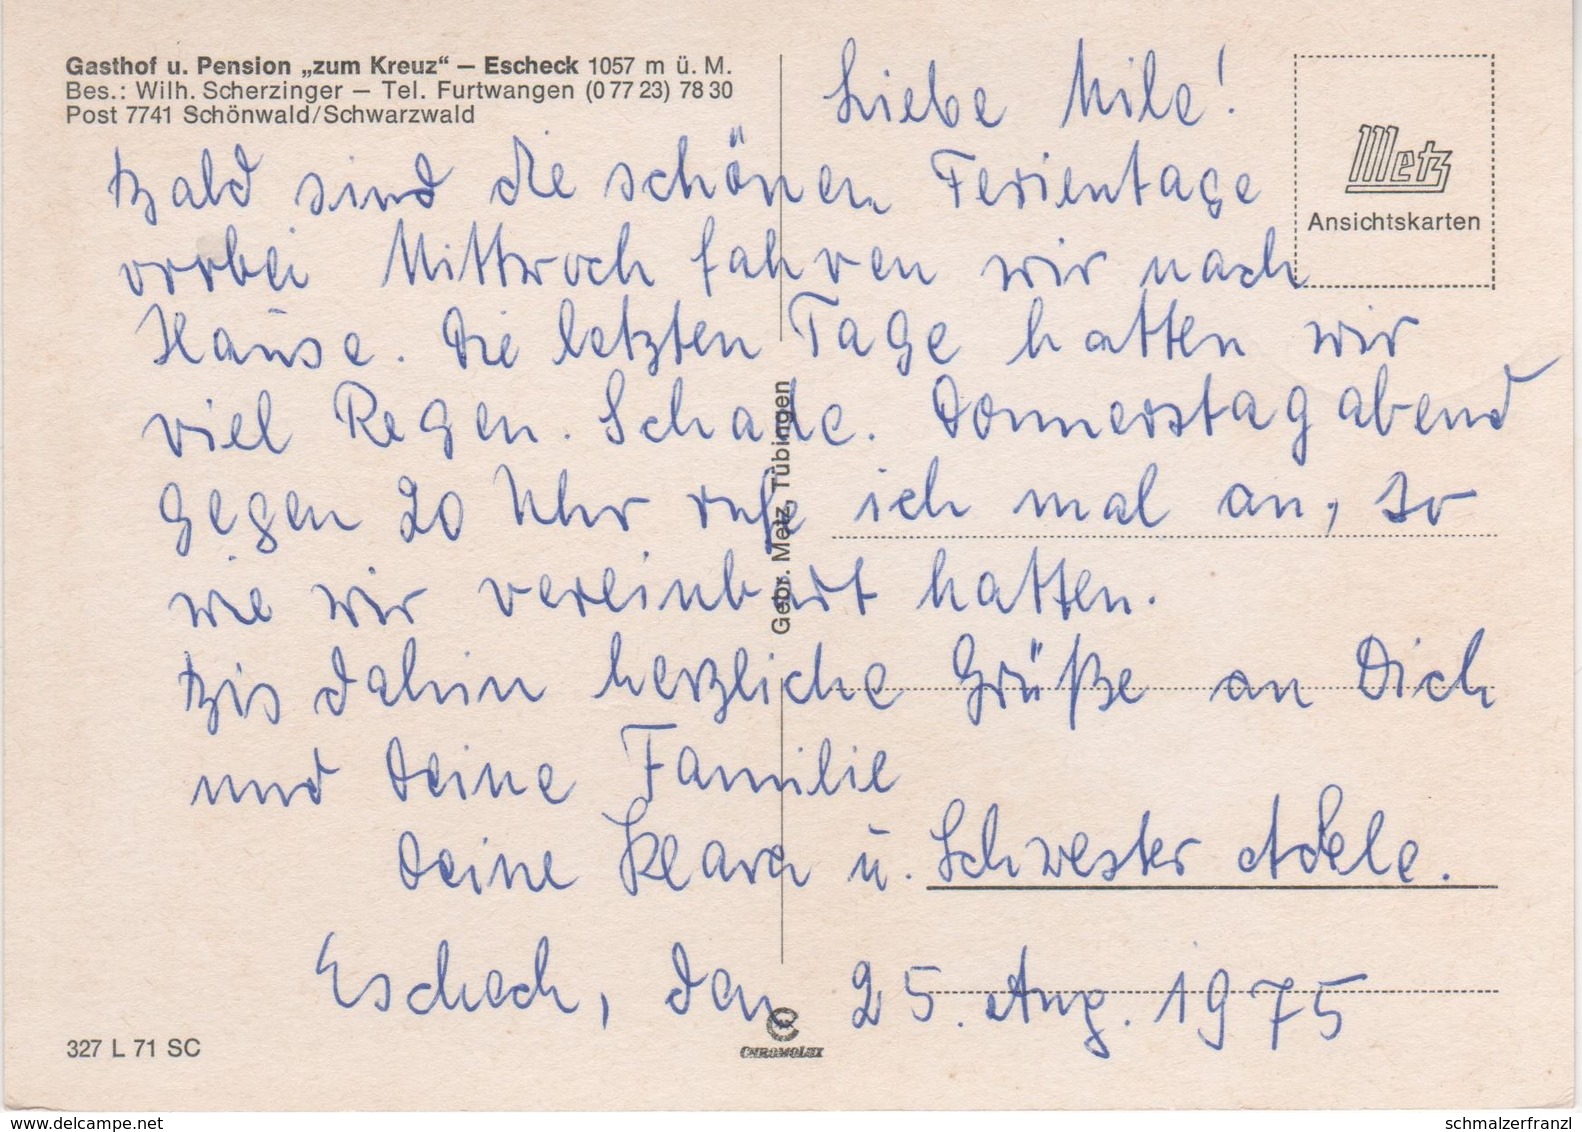 Gasthof u. Pension „zum Kreuz“ — Escheck 1057 m ü. M.
Bes.: Wilh. Scherzinger — Tel. Furtwangen (0 77 23) 78 30
Post 7741 Schönwald/Schwarzwald
Metz
Ansichtskarten
Liebe Mile!
Bald sind die schönen Ferientage
vorbei Mittwoch fahren wir nach
Hause. Die letzten Tage hatten wir
viel Regen. Schade. Donnerstag abend
gegen 20 Uhr rufe ich mal an, so
wie wir vereinbart hatten.
Bis dahin herzliche Grüße an Dich
und Deine Familie
Deine Klara u. Schwester Adele.
Escheck, den 25. Aug. 1975
Gebr. Metz, Tübingen
327 L 71 SC
CHROMOLUX
www.delcampe.net
schmalzerfranzl